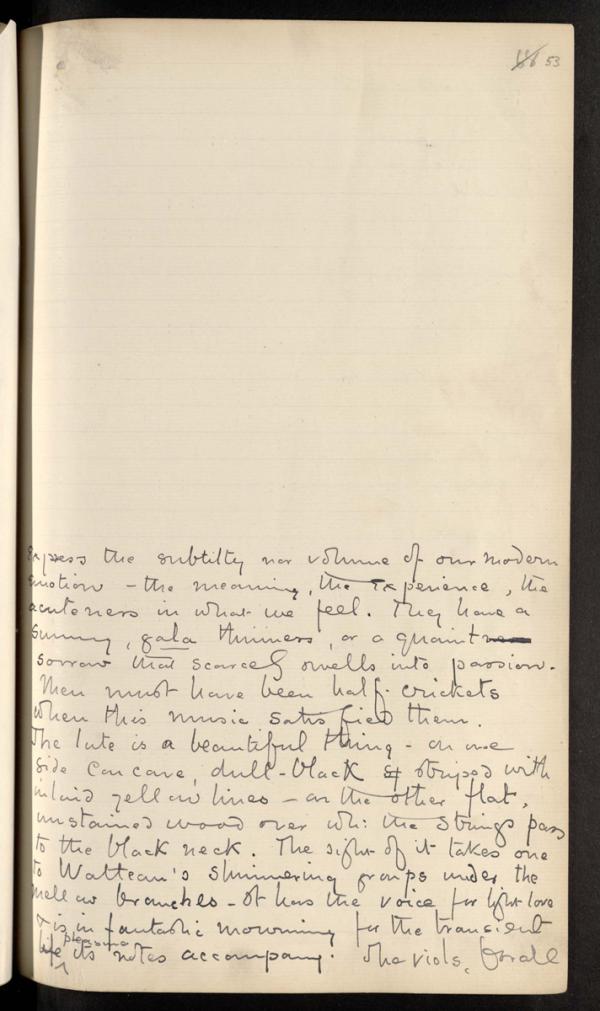 53
express the subtilty nor volume of our modern
emotion – the meaning, the experience, the
acuteness in what we feel. They have a
sunny, gala thinness, or a quaint
sorrow that scarcely swells into passion.
Men must have been half-crickets
when this music satisfied them.
The lute is a beautiful thing – on one
side concave, dull-black & striped with
inlaid yellow lines – on the other flat,
unstained wood over wh: the strings pass
to the black neck. The sight of it takes one
to Watteau's shimmering groups under the
mellow branches – It has the voice for light love
& is in fantastic mourning for the transient
pleasure
life its notes accompany. The viols, for all